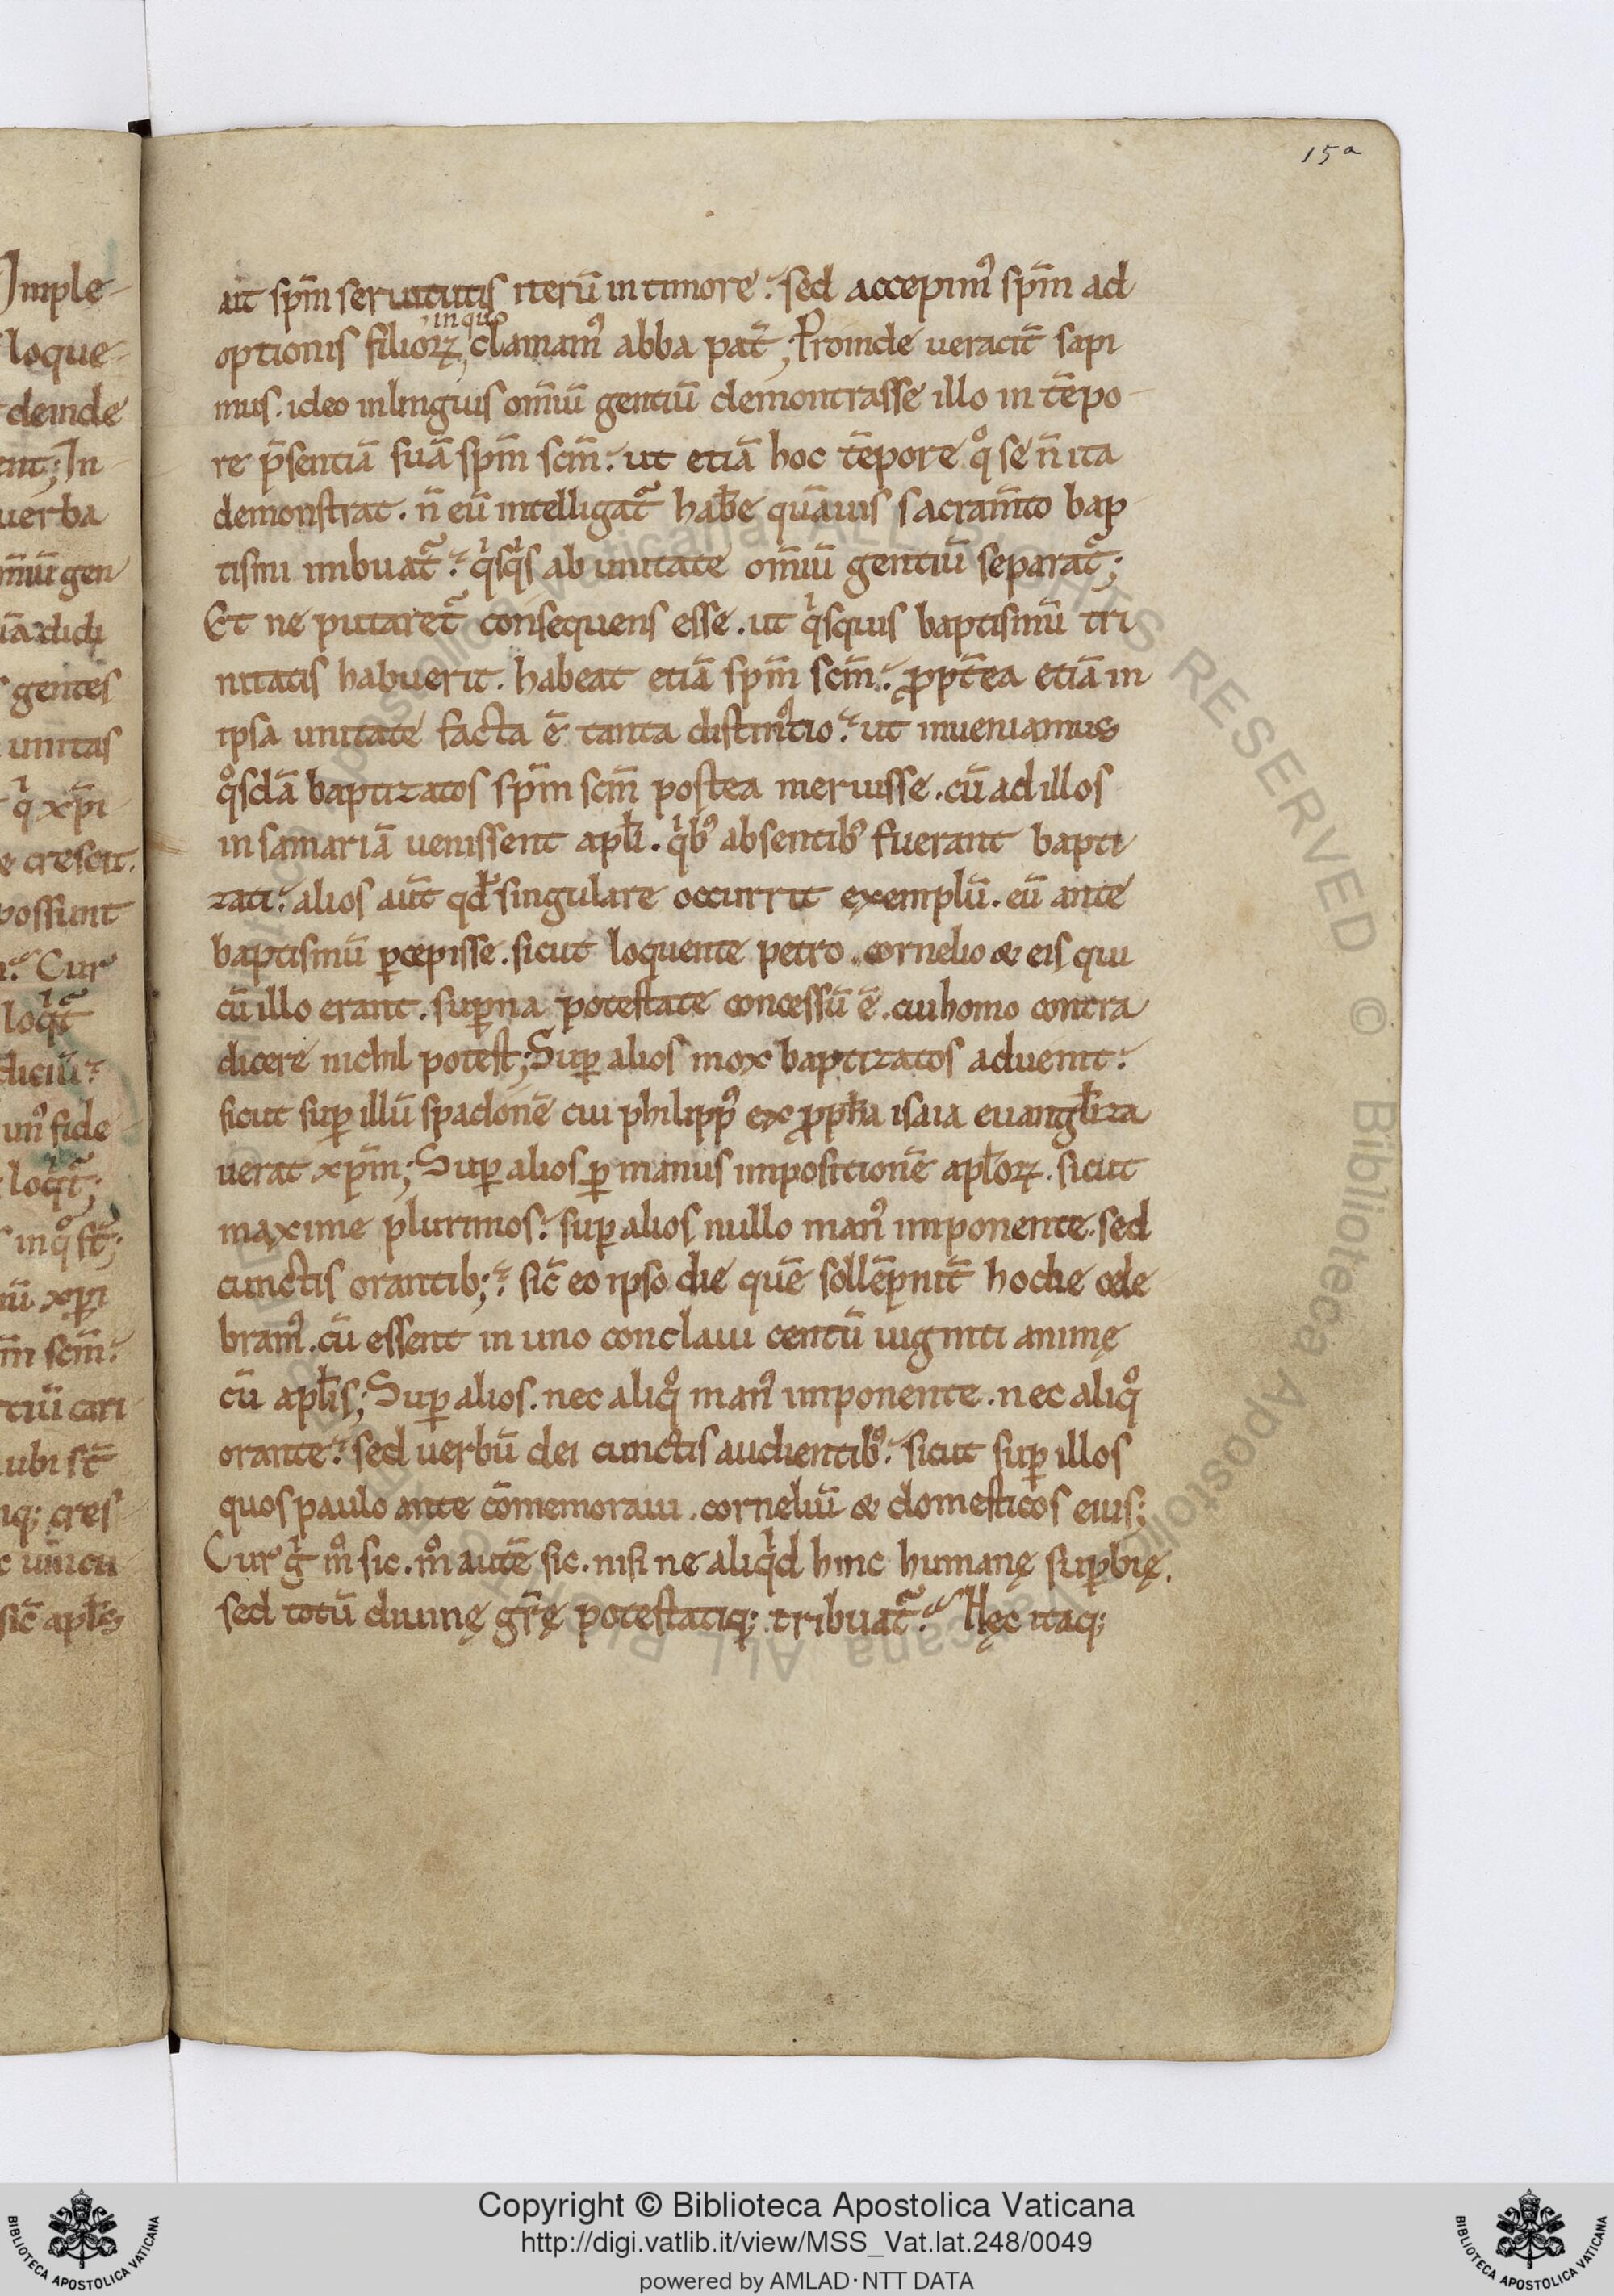 15a
Imple
loque
deinde
ent; In
uerba
om̄iū gen
iā didi
gentes
unitas
qͥ xp̄i
e crescit.
possunt
Cur
loqͥt᷒
diciū
un᷒ fide
loqͥt᷒;
inqͦ st̄;
ū xp̄i
m̄ scm̄
tiū cari
ubi st̄
q; cres
c uincu
sic̄ apl̄s
ait sp̄m seruitutis iterū in timore. sed accepim᷒ sp̄m ad
in quo
optionis filioꝝ, clamam᷒ abba pat̄; Proinde ueracit̄ sapi
mus. ideo in linguis om̄iū gentiū demontrasse illo in tēpo
re p̄sentiā suā sp̄m scm̄. ut etiā hoc tēpore qͦ se n̄ ita
demonstrat. n̄ eū intelligat᷒ hab̄e quāuis sacram̄to bap
tismi imbuat᷒. qͥsqͥs ab unitate om̄iū gentiū separat᷒;
Et ne putaret᷒ consequens esse. ut qͥsquis baptismū tri
nitatis habuerit. habeat etiā sp̄m scm̄. ꝓpt̄ea etiā in
ipsa unitate facta ē tanta distinctio. ut inueniamus
qͦsdā baptizatos sp̄m scm̄ postea meruisse. cū ad illos
in samariā uenissent apl̄i. qͥb᷒ absentib᷒ fuerant bapti
zati. alios aūt qd̄ singulare occurrit exemplū. eū ante
baptismū ꝑcepisse. sicut loquente petro. cornelio & eis qui
cū illo erant. suꝑna potestate concessū ē. cui homo contra
dicere nichil potest; Suꝑ alios mox baptizatos aduenit.
sicut suꝑ illū spadonē cui philipp᷒ ex ꝓph̄a isaia euangl̄iza
uerat xp̄m; Suꝑ alios ꝑ manus impositionē apl̄oꝝ. sicut
maxime plurimos. suꝑ alios nullo man᷒ imponente. sed
cunctis orantib;. sic̄ eo ipso die quē sollēpnit̄ hodie cele
bram᷒. cū essent in uno conclaui centū uiginti animę
cū apl̄is; Suꝑ alios. nec aliqͦ man᷒ imponente. nec aliqͦ
orante. sed uerbū dei cunctis audientib᷒. sicut suꝑ illos
quos paulo ante cōmemoraui. corneliū & domesticos eius;
Cur gͥ mͦ sic. mͦ autē sic. nisi ne aliqͥd hinc humanę suꝑbię.
sed totū diuinę gr̄ę potestatiq; tribuat᷒. Hęc itaq;
Copyright © Biblioteca Apostolica Vaticana
http://digi.vatlib.it/view/MSS_Vat.lat.248/0049
powered by AMLAD·NTT DATA
BIBLIOTECA APOSTOLICA VATICANA
BIBLIOTECA APOSTOLICA VATICANA